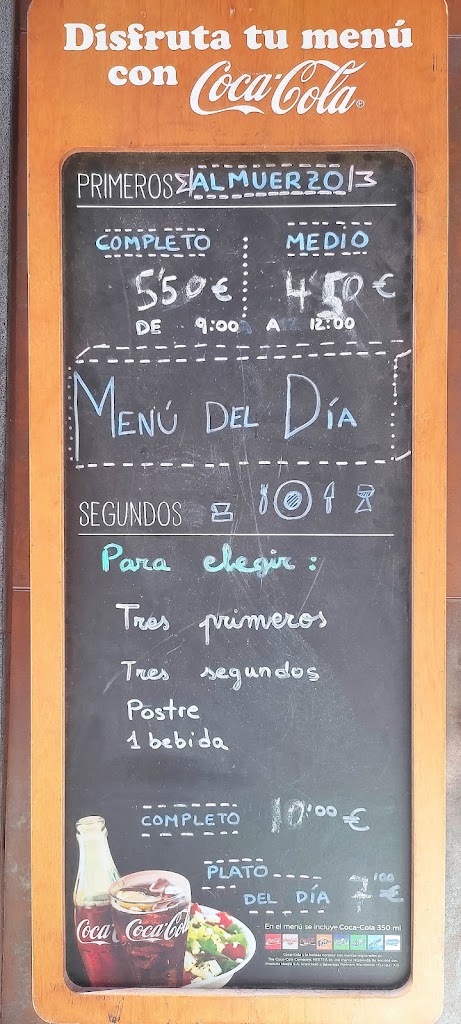 Disfruta tu menú
con Coca-Cola®
PRIMEROS ALMUERZO
COMPLETO MEDIO
5'50€ 4'50€
DE 9:00 A 12:00
MENÚ DEL DÍA
SEGUNDOS
Para elegir:
Tres primeros
Tres segundos
Postre
1 bebida
COMPLETO 10'00 €
PLATO
DEL DÍA 7'00 €
Coca-Cola Coca-Cola
En el menú se incluye Coca-Cola 350 ml